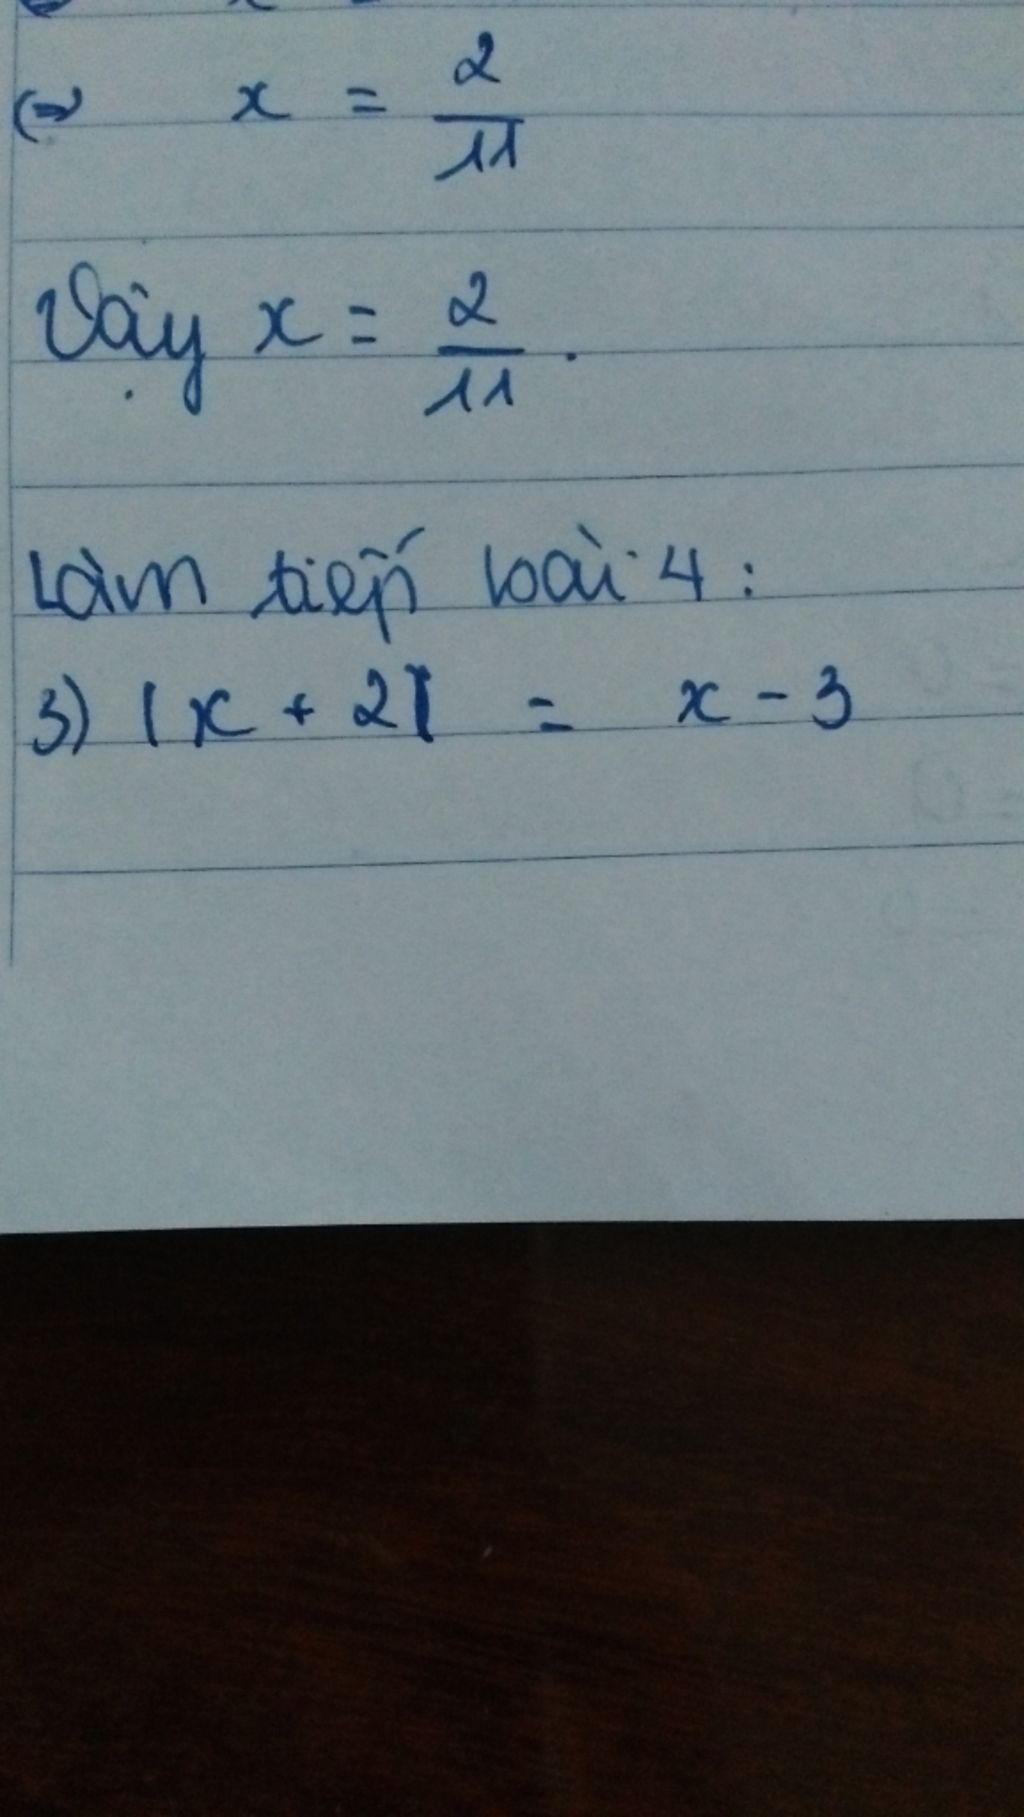 ⇔ x = 2/11
Vậy x = 2/11.
Làm tiếp bài 4:
3) |x + 2| = x - 3